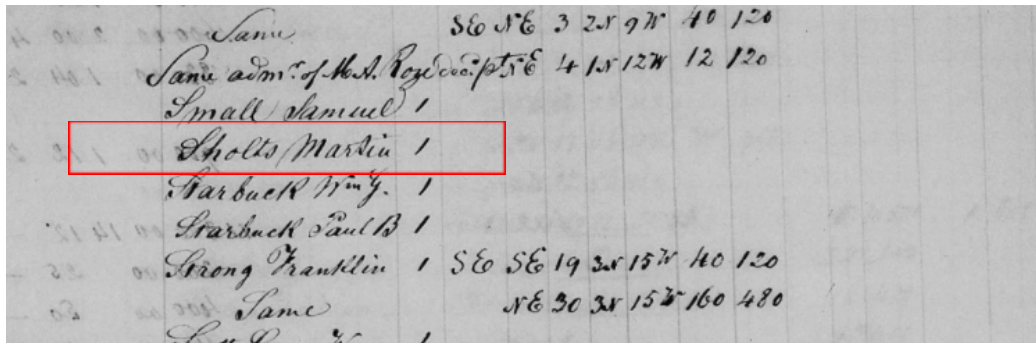 Same SE NE 3 2N 9W 40 120
Same admr. of M.A. Roze dec'd pt NE 4 1N 12W 12 120
Small Samuel 1
Sholts Martin 1
Starbuck Wm Y. 1
Starbuck Paul B 1
Strong Franklin 1 SE SE 19 3N 15W 40 120
Same NE 30 3N 15W 160 480